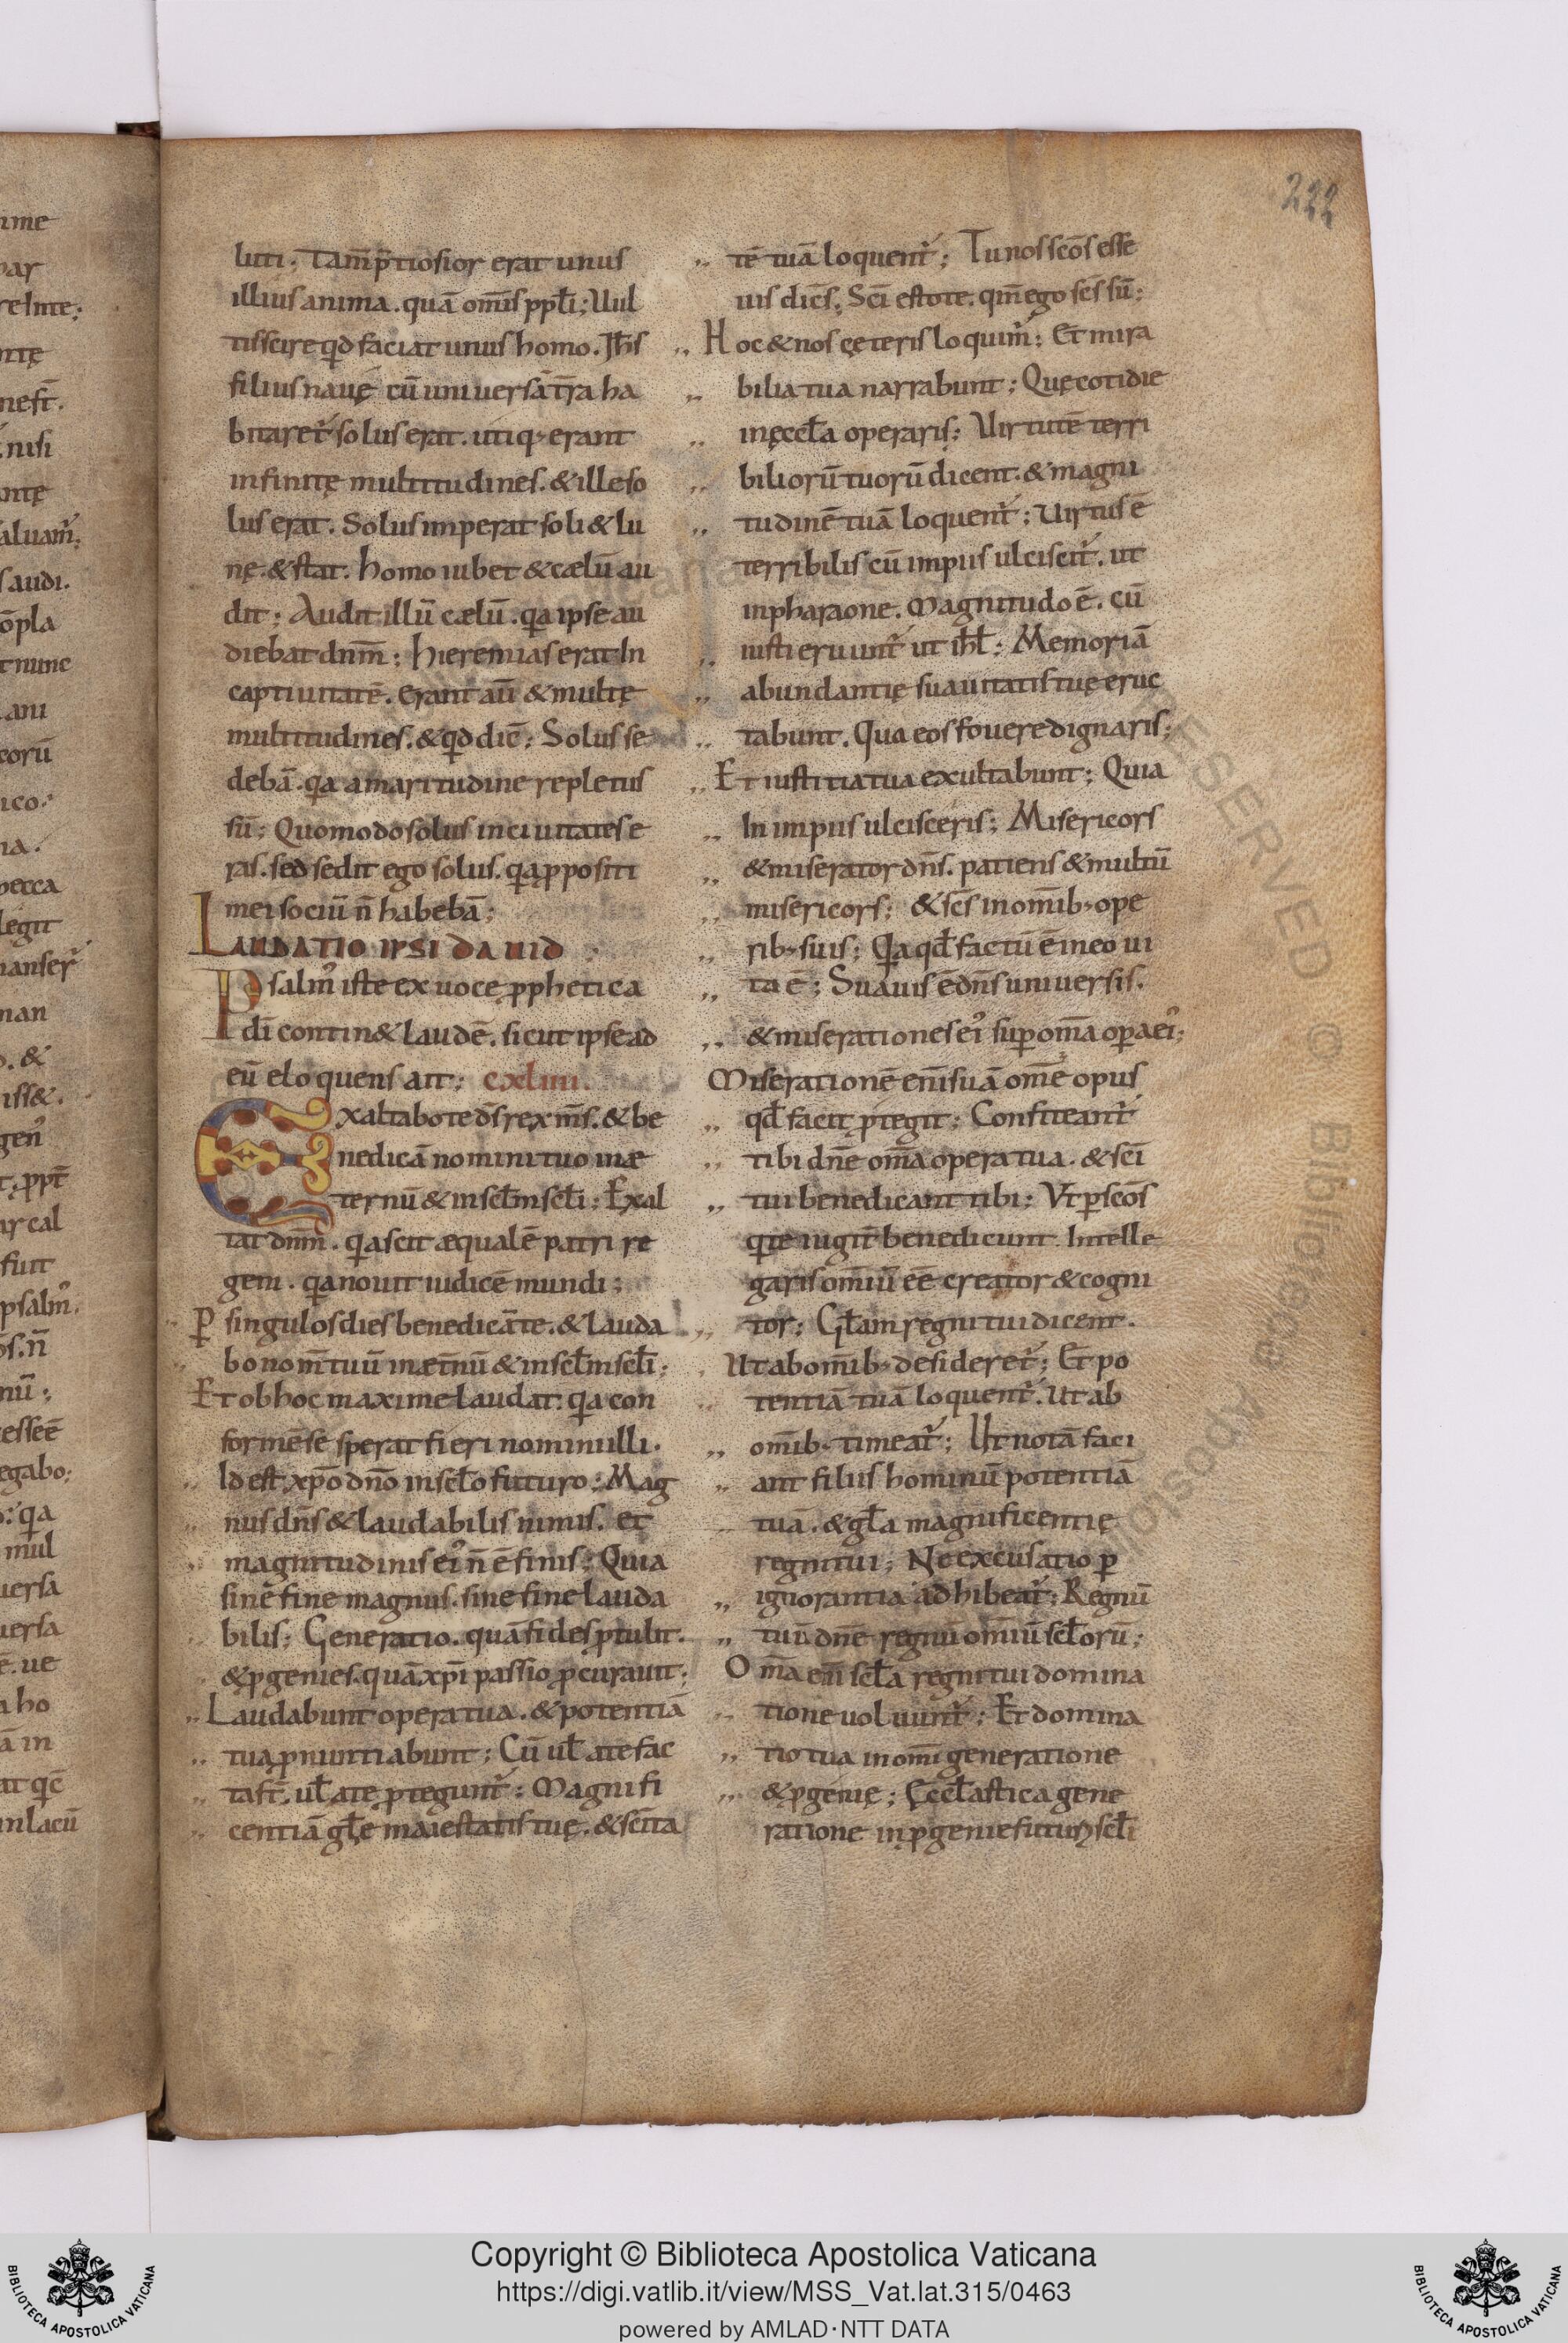 222
luti; Tam̄ p̄tiosior erat unus
illius anima. quā om̄s ppl̄i; Uul
tis scire qd̄ faciat unus homo. Ih̄s
filius nauę cū uniuersa t̄ra ha
bitaret᷑ solus erat. utiq; erant
infinitę multitudines. & ille so
lus erat. Solus imperat soli & lu
nę. & stat. homo iubet & cælū au
dit; Audit illū cælū. qa ipse au
diebat dnm̄; hieremias erat In
captiuitatē. erant aū & multę
multitudines. & qd̄ dic̄; Solus se
debā. qa amaritudine repletus
sū; Quomodo solus in ciuitates e
ras. sed sedit ego solus. qa ppositi
mei sociū n̄ habebā;
LAUDATIO IPSI DAUID
Psalm᷒ iste ex uoce pphetica
dī contin& laudē. sicut ipse ad
eū eloquens ait; cxliiii.
Exaltabo te d̄s rex m̄s. & be
nedicā nomini tuo in æ
ternū & in scl̄m scl̄i; Exal
tat dnm̄. qa scit æqualē patri re
gem. qa nouit iudicē mundi;
P singulos dies benedicā te. & lauda
bo nom̄ tuū in æt̄nū & in scl̄m scl̄i;
Et ob hoc maxime laudat: qa con
formē se sperat fieri nomini illi.
Id est xp̄o dn̄o in scl̄o futuro; Mag
nus dn̄s & laudabilis nimis. et
magnitudinis ei᷒ n̄ ē finis; Quia
sine fine magnus. sine fine lauda
bilis; Generatio. quā fides ptulit.
& pgenies. quā xp̄i passio pcurauit;
Laudabunt opera tua. & potentiā
tuā pnuntiabunt; Cū ul̄ a te fac
ta st̄. ul̄ a te pteguntr᷑; Magnifi
centiā gl̄ę maiestatis tuę. & scīta
tē tuā loquentr᷑; Tu nos scōs esse
uis dicēs. Sc̄i estote. qm̄ ego scs sū;
Hoc & nos cęteris loquim᷑; Et mira
bilia tua narrabunt; Quę cotidie
in ęccl̄a operaris; Uirtutē terri
biliorū tuorū dicent. & magni
tudinē tuā loquentr᷑; Uirtus ē
terribilis cū impiis ulciscitr᷑. ut
in pharaone. Magnitudo ē. cū
iusti eruuntr᷑ ut ihl̄; Memoriā
abundantię suauitatis tuę eruc
tabunt. Qua eos fouere dignaris;
Et iustitia tua exultabunt; Quia
In impiis ulcisceris; Misericors
& miserator dn̄s. patiens & multū
misericors; & scs in om̄ib; ope
rib; suis; Qa qd̄ factū ē in eo ui
ta ē; Suauis ē dn̄s uniuersis.
& miserationes ei᷒ sup om̄a opa ei᷒;
Miserationē enī suā om̄e opus
qd̄ facit ptegit; Confiteantr᷑
tibi dn̄e om̄a opera tua. & scī
tui benedicant tibi; Vt p scōs
qte iugit̄ benedicunt. Intelle
garis om̄iū eē creator & cogni
tor; Gl̄am regni tui dicent.
Ut ab om̄ib; desideretr᷑; Et po
tentiā tuā loquentr᷑. Ut ab
om̄ib; timeatr᷑; Ut notā faci
ant filiis hominū potentiā
tuā. & gl̄a magnificentię
regni tui; Ne excusatio p
ignorantia adhibeatr᷑; Regnū
tuū dn̄e regnū om̄iū scl̄orū;
Om̄a eni scl̄a regni tui domina
tione uoluuntr᷑; Et domina
tio tua in om̄i generatione
& pgenię; Ęccl̄astica gene
ratione in pgenie futuri scl̄i
Copyright © Biblioteca Apostolica Vaticana
https://digi.vatlib.it/view/MSS_Vat.lat.315/0463
powered by AMLAD·NTT DATA